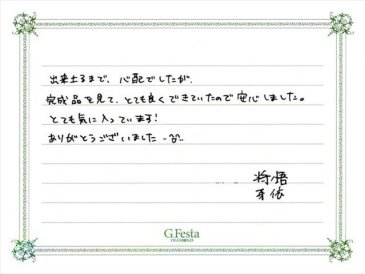 出来上るまで、心配でしたが、
完成品を見て、とても良くできていたので安心しました。
とても気に入っています!
ありがとうございました
将悟
芽依
G.Festa
DIAMOND